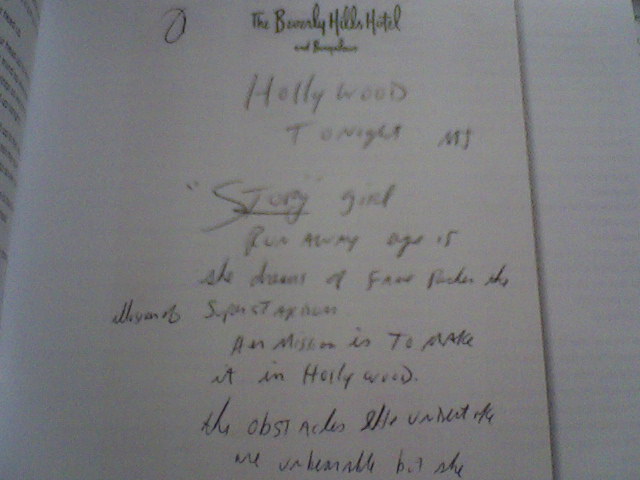 The Beverly Hills Hotel
and Bungalows
Hollywood
Tonight MJ
"Story" girl
Run Away age 15
she dreams of Fame the
illusion of Superstardom
Her Mission is To make
it in Hollywood.
the obstacles she
are unbearable but she